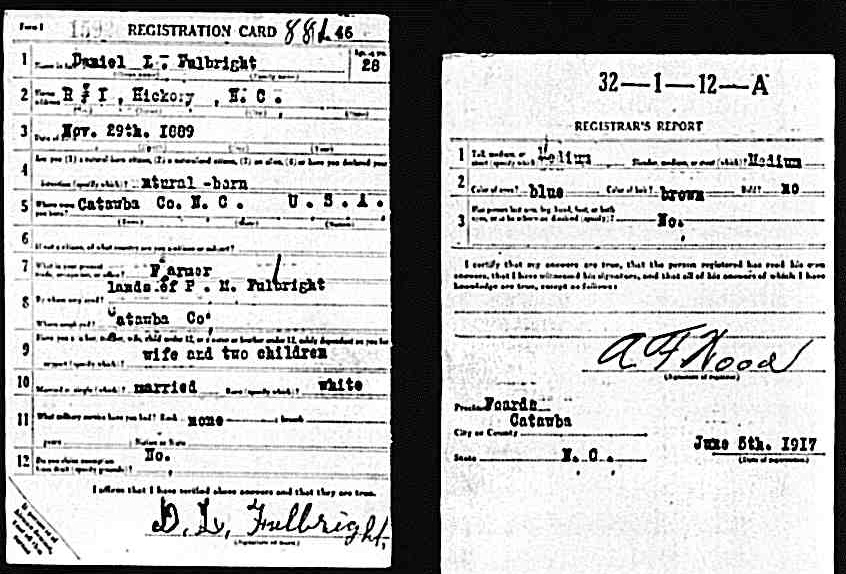 Form 1 1592 REGISTRATION CARD 46
1 Daniel L. Fulbright Age, in yrs. 28
(Given name) (Family name)
2 Home address R # 1, Hickory, N. C.
3 Date of birth Nov. 29th. 1889
4 Are you (1) a natural-born citizen, (2) a naturalized citizen, (3) an alien, (4) or have you declared your
intention (specify which)? natural -born
5 Where were you born? Catawba Co. N. C. U. S. A.
(Town) (State) (Nation)
6 If not a citizen, of what country are you a citizen or subject?
7 What is your present trade, occupation, or office? Farmer
lands of P. M. Fulbright
8 By whom employed?
Where employed? Catawba Co.
9 Have you a father, mother, wife, child under 12, or a sister or brother under 12, solely dependent on you for
support (specify which)? wife and two children
10 Married or single (which)? married Race (specify which)? white
11 What military service have you had? Rank none branch
years Nation or State
12 Do you claim exemption from draft (specify grounds)? No.
I affirm that I have verified above answers and that they are true.
D. L. Fulbright,
(Signature or mark)
32—1—12—A
REGISTRAR'S REPORT
1 Tall, medium, or short (specify which)? Medium Slender, medium, or stout (which)? Medium
2 Color of eyes? blue Color of hair? brown Bald? no
3 Has person lost arm, leg, hand, foot, or both eyes, or is he otherwise disabled (specify)? No.
I certify that my answers are true, that the person registered has read his own
answers, that I have witnessed his signature, and that all of his answers of which I have
knowledge are true, except as follows:
A F Wood
(Signature of registrar)
Precinct
Catawba
City or County
State N. C. June 5th. 1917
(Date of registration)